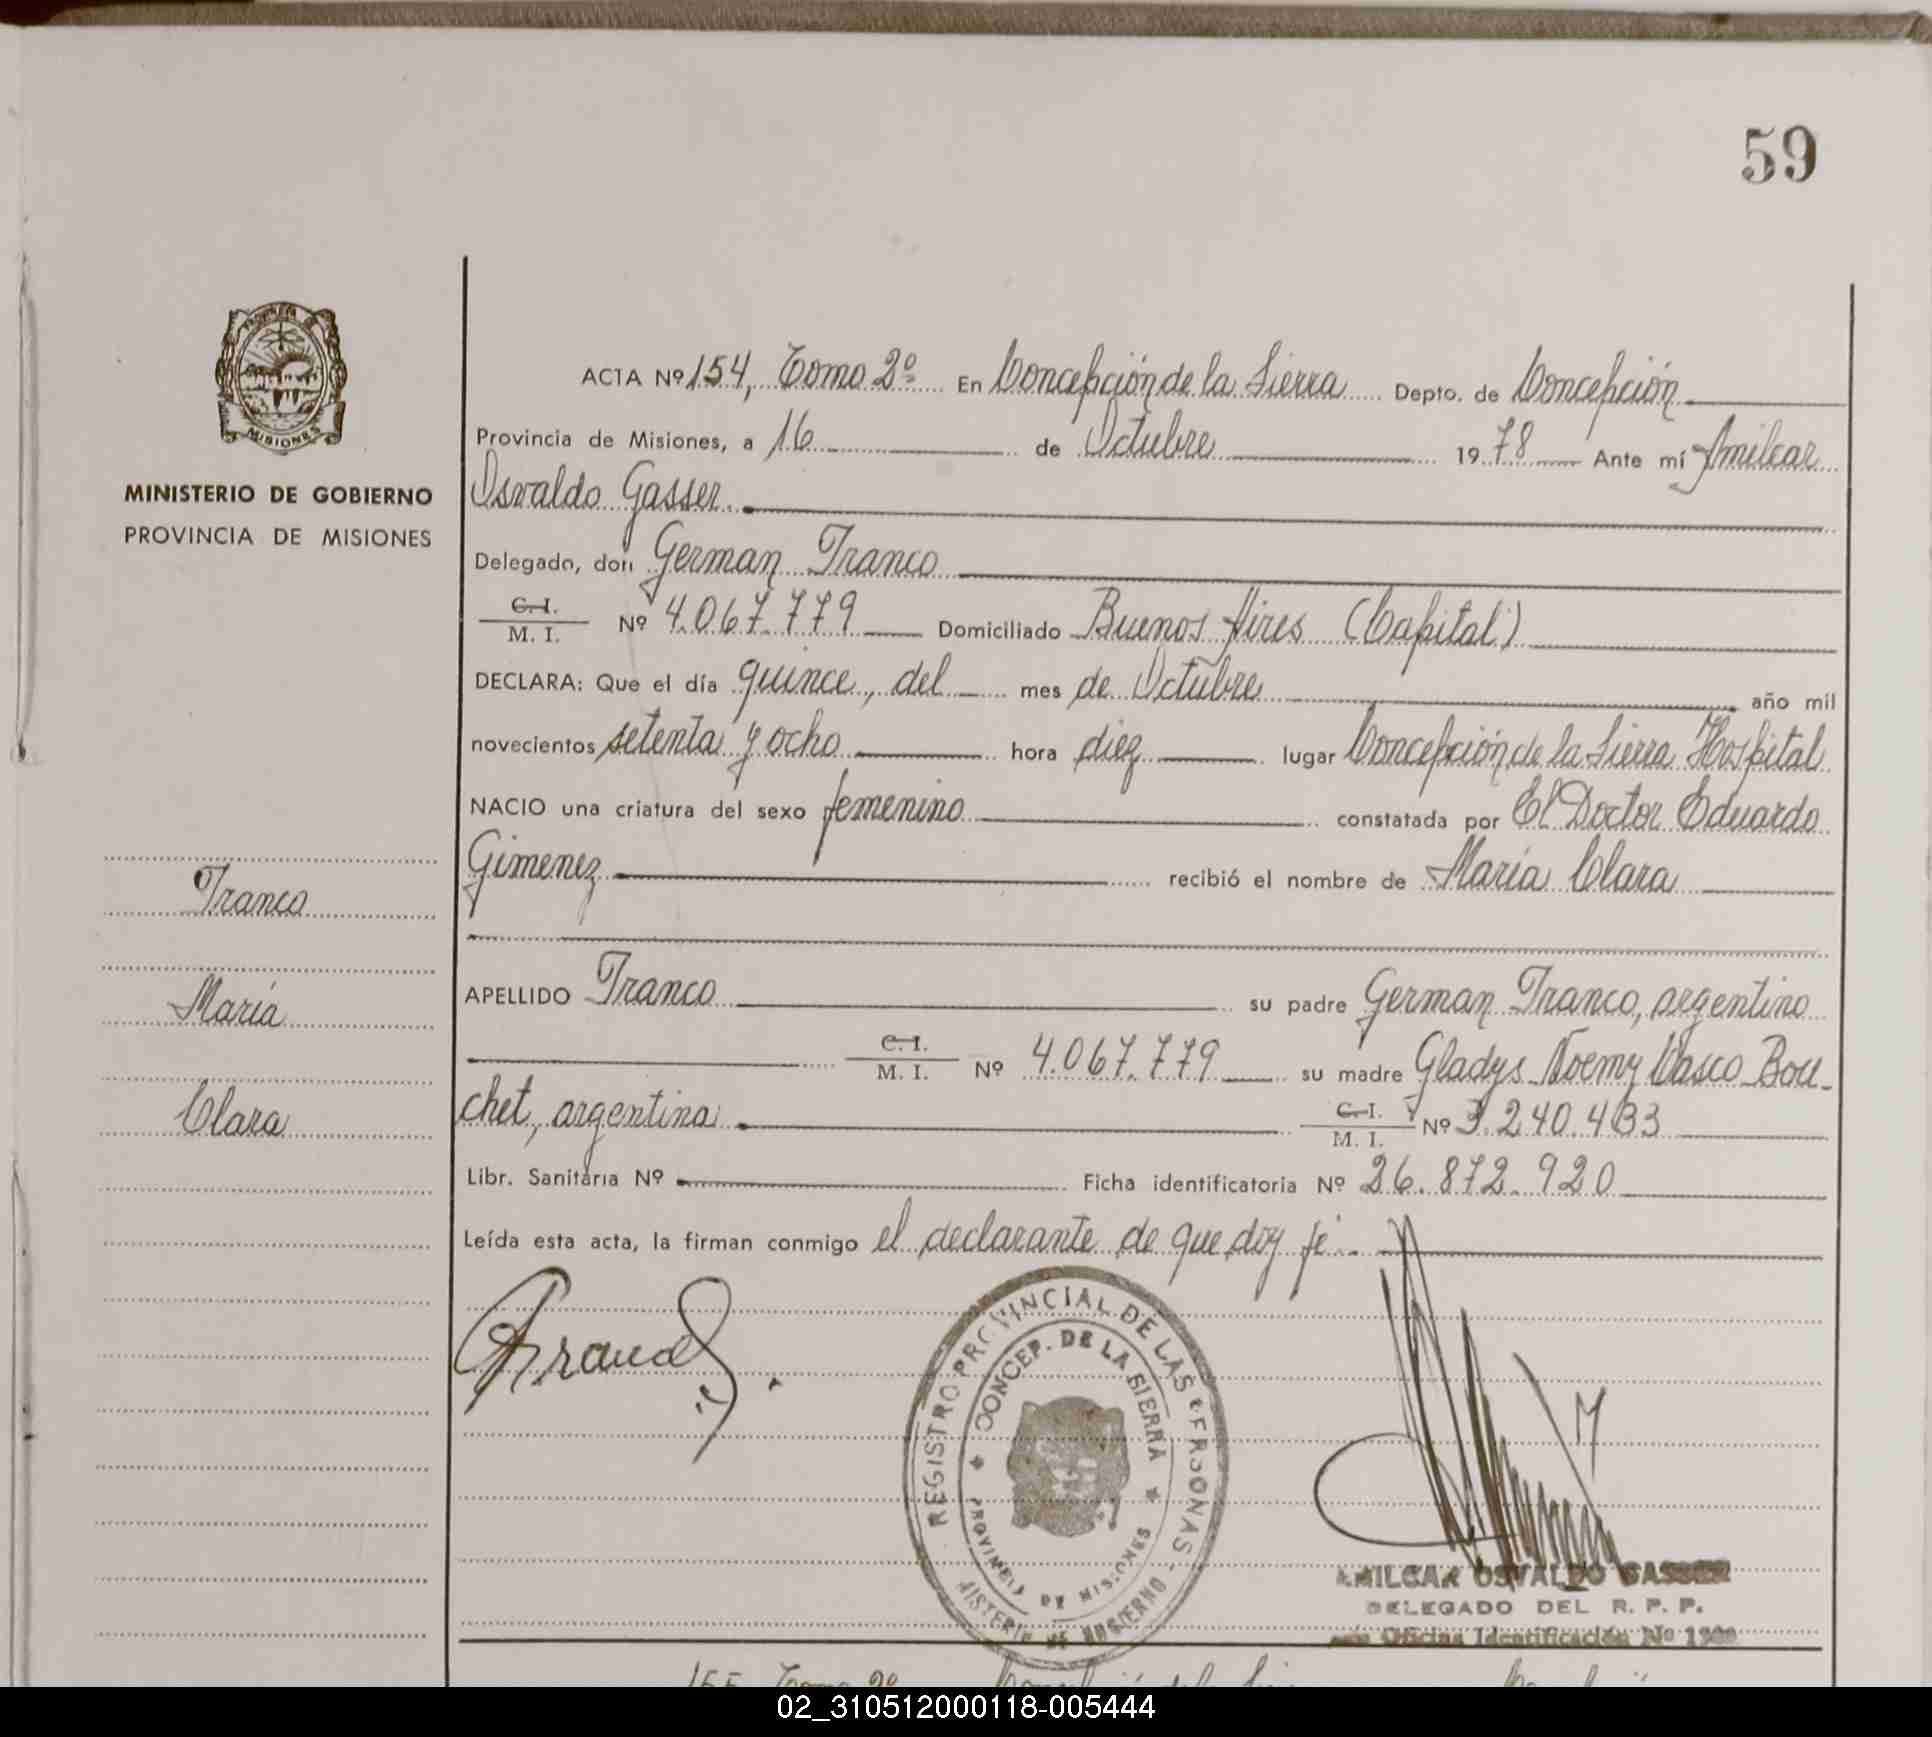 59
PROVINCIA DE
MISIONES
MINISTERIO DE GOBIERNO
PROVINCIA DE MISIONES
Franco
María
Clara
ACTA Nº 154, Tomo 2º En Concepción de la Sierra Depto. de Concepción
Provincia de Misiones, a 16 de Octubre 1978 Ante mí Amilcar
Osvaldo Gasser.
Delegado, don German Franco
C. I.
M. I. Nº 4.067.779 Domiciliado Buenos Aires (Capital)
DECLARA: Que el día quince, del mes de Octubre año mil
novecientos setenta y ocho hora diez lugar Concepción de la Sierra Hospital
NACIO una criatura del sexo femenino constatada por El Doctor Eduardo
Gimenez recibió el nombre de María Clara
APELLIDO Franco su padre German Franco, argentino
C. I.
M. I. Nº 4.067.779 su madre Gladys Noemy Vasco Bou-
chet, argentina C. I.
M. I. Nº 3.240.433
Libr. Sanitaria Nº Ficha identificatoria Nº 26.872.920
Leída esta acta, la firman conmigo el declarante de que doy fé.
REGISTRO PROVINCIAL DE LAS PERSONAS
CONCEP. DE LA SIERRA
PROVINCIA DE MISIONES
MINISTERIO DE GOBIERNO
AMILCAR OSVALDO GASSER
DELEGADO DEL R. P. P.
Oficina Identificación Nº
155 Tomo 2º
02_310512000118-005444